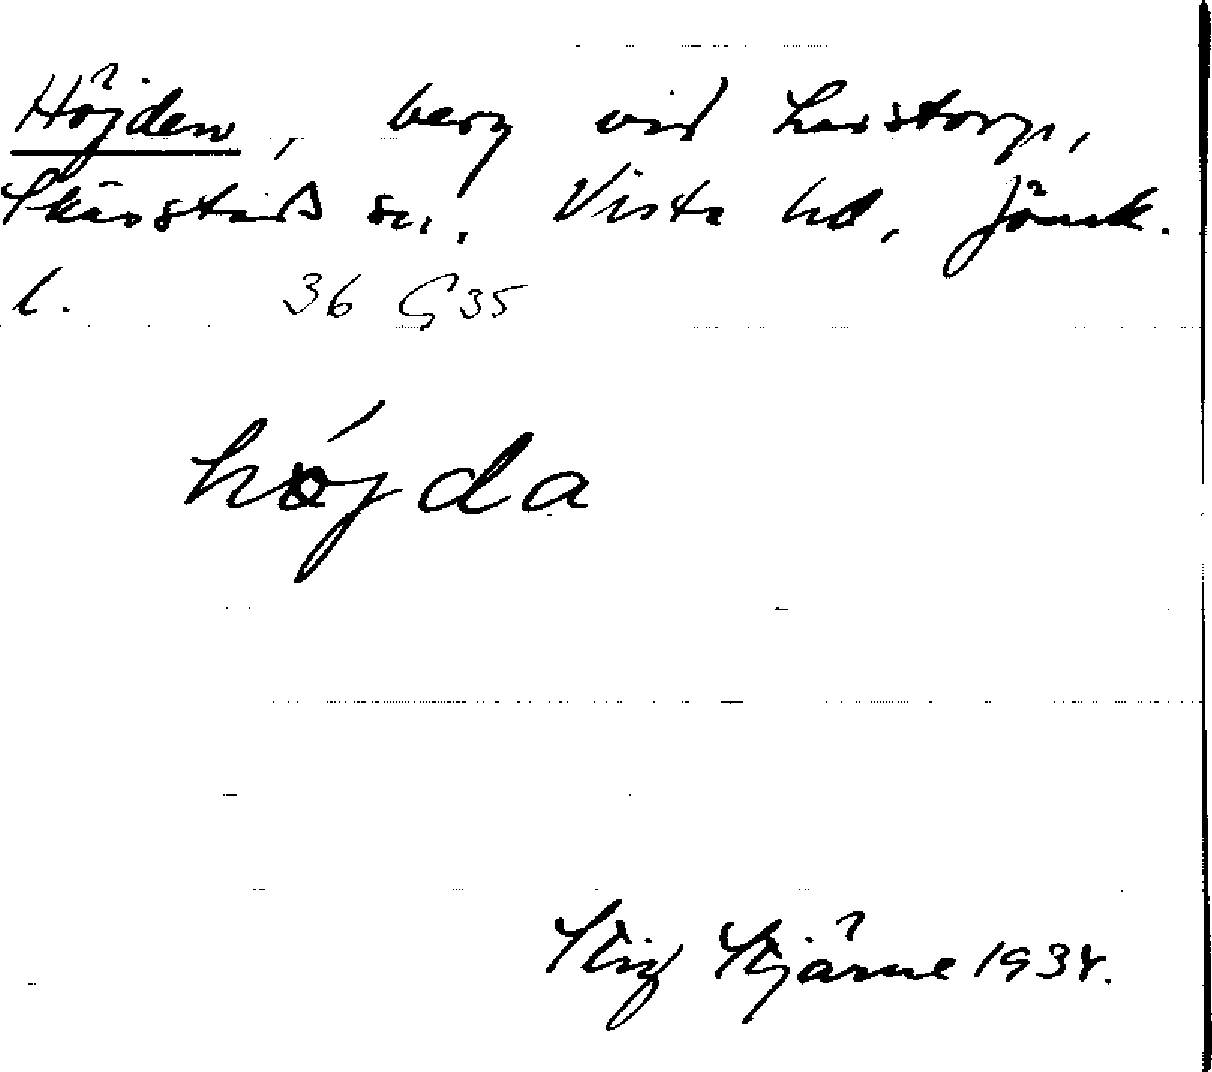 Höjden, berg vid Lerstorp,
Skärstads sn. Vista hd, Jönk.
l. 36 G 35
hǿjda
Stig Stjärne 1934.